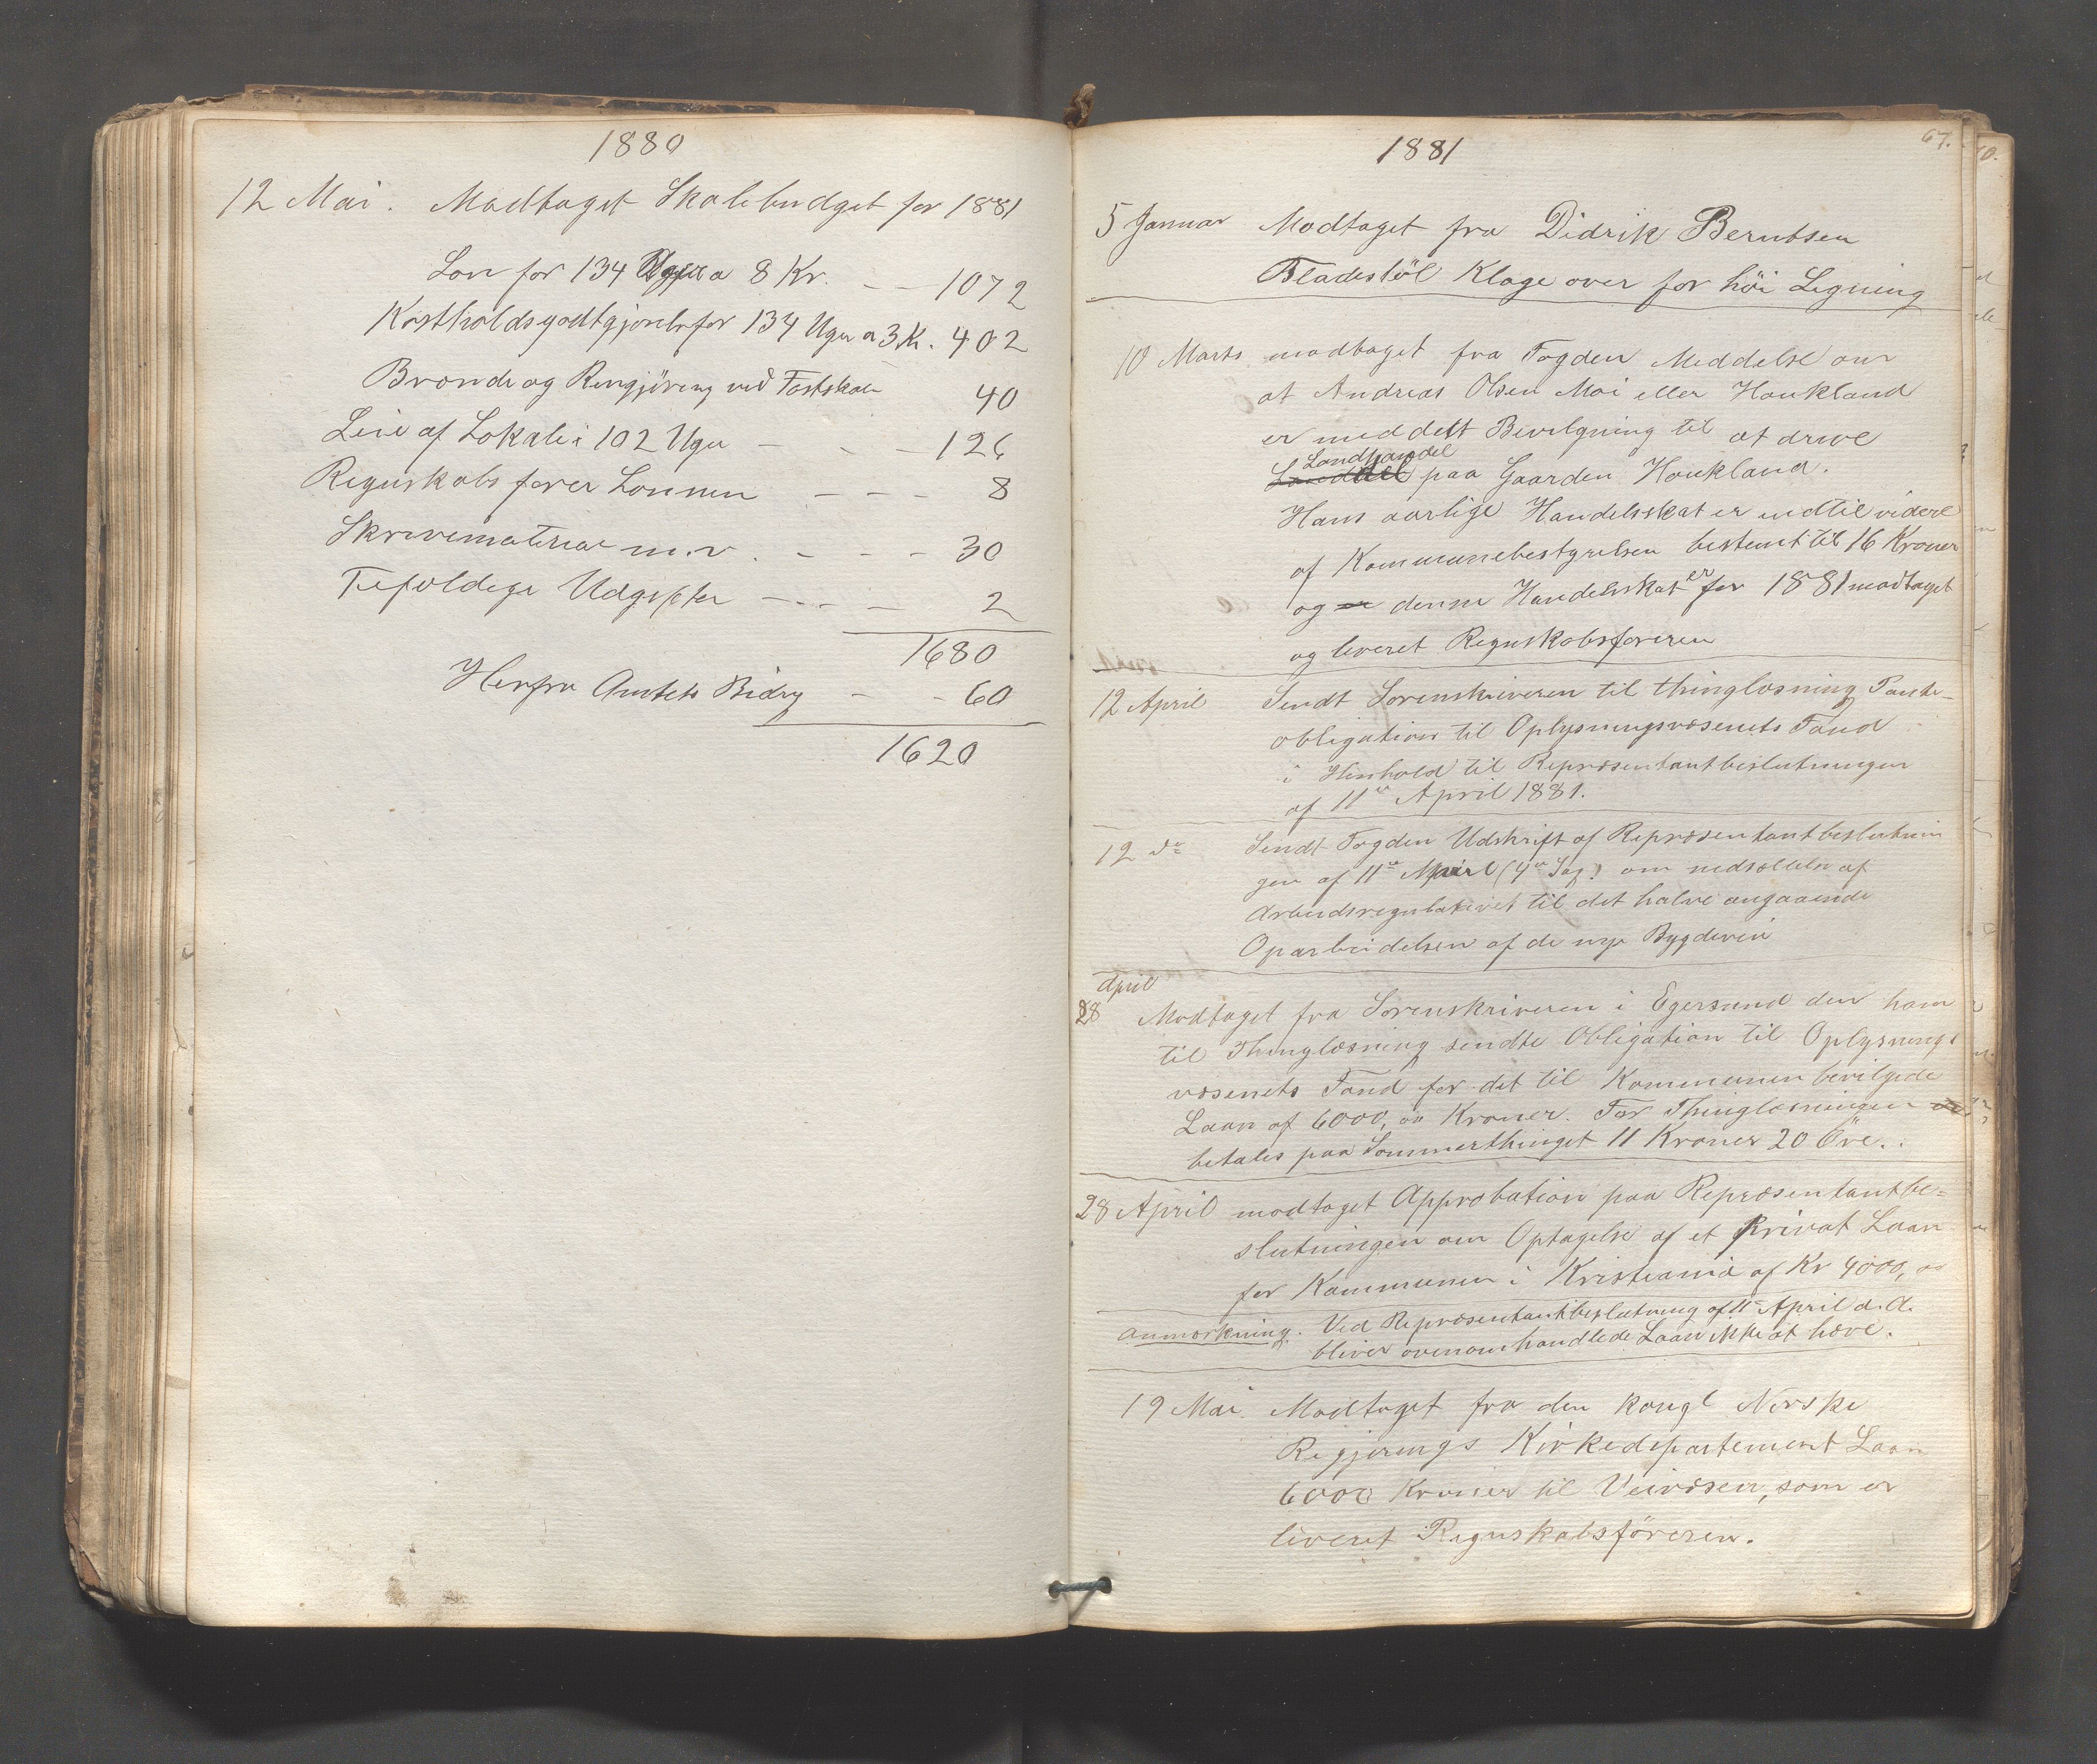 1880
12 Mai. Modtaget Skolebudget for 1881
Løn for 134 Uger a 8 Kr. — — 1072
Kostholdsgodtgjørelse for 134 Uger a 3 K. 402
Brænde og Rengjöring ved Fastskole 40
Leie af Lokale i 102 Uger — - — 126
Regnskabsfører Lønnen — — - 8
Skrivematerial m.v. — - - 30
Tilfældige Udgifter — .. — 2
1680
Herfra Amtets Bidrag — — 60
1620
1881
67.
5 Januar Modtaget fra Didrik Berntsen
Bladestöl Klage over for höi Ligning
10 Marts modtaget fra Fogden Meddelse om
at Andreas Olsen Moi eller Houkland
er meddelt Bevilgning til at drive
Landhandel
paa Gaarden Houkland.
Hans aarlige Handelsskat er indtil videre
af Kommunebestyrelsen bestemt til 16 Kroner
og er denne Handelsskat er for 1881 modtaget
og leveret Regnskabsføreren
12 April Sendt Sorenskriveren til thinglæsning Pante-
obligation til Oplysningsvæsenets Fond
i Henhold til Repræsentantbeslutningen
af 11te April 1881.
12 do Sendt Fogden Udskrift af Repræsentantbeslutnin
gen af 11te April (4de Sag) om nedsættelse af
Arbeidsregulativet til det halve angaaende
Oparbeidelsen af de nye Bygdeveie
April
28 Modtaget fra Sorenskriveren i Egersund den ham
til Thinglæsning sendte Obligation til Oplysnings
væsenets Fond for det til Kommunen bevilgede
Laan af 6000,00 Kroner. For Thinglæsningen
betales paa Sommerthinget 11 Kroner 20 Öre.
28 April modtaget Approbation paa Repræsentantbe=
slutningen om Optagelse af et Privat Laan
for Kommunen i Kristiania af Kr 4000,00
Anmærkning. Ved Repræsentantbeslutning af 11te April d.A.
bliver ovenomhandlede Laan ikke at hæve.
19 Mai. Modtaget fra den kongl Norske
Regjerings Kirkedepartement Laan
6000 Kroner til Veivæsen, som er
leveret Regnskabsföreren.